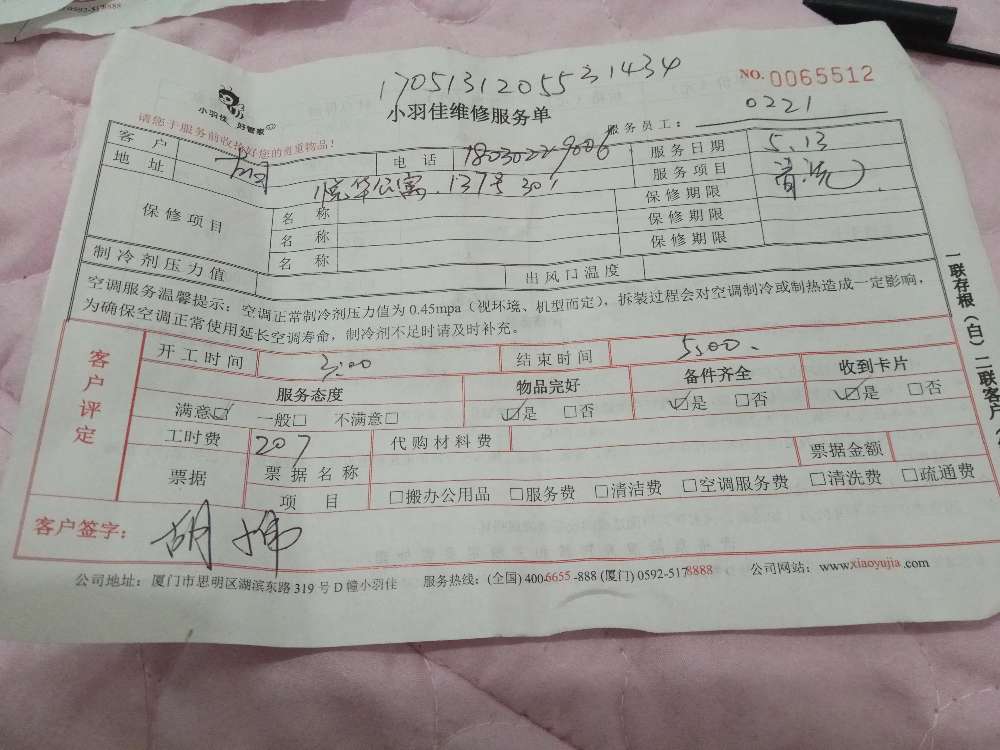 17051312055231434
NO. 0065512
小羽佳 好管家
小羽佳维修服务单
服务员工: 0221
请您于服务前收拾好您的贵重物品!
客户 胡 电话 18030229006 服务日期 5.13
地址 悦华公寓.137号301 服务项目 清洗
保修项目 名称 保修期限
名称 保修期限
名称 保修期限
制冷剂压力值 出风口温度
空调服务温馨提示:空调正常制冷剂压力值为0.45mpa(视环境、机型而定),拆装过程会对空调制冷或制热造成一定影响,
为确保空调正常使用延长空调寿命,制冷剂不足时请及时补充。
客户评定
开工时间 3:00 结束时间 5:00.
服务态度 物品完好 备件齐全 收到卡片
满意☑ 一般□ 不满意□ ☑是 □否 ☑是 □否 ☑是 □否
工时费 207 代购材料费
票据 票据名称 票据金额
项目 □搬办公用品 □服务费 □清洁费 □空调服务费 □清洗费 □疏通费
客户签字: 胡伟
公司地址:厦门市思明区湖滨东路319号D幢小羽佳 服务热线:(全国)400-6655-888(厦门)0592-5178888 公司网站:www.xiaoyujia.com
一联存根(白)二联客户